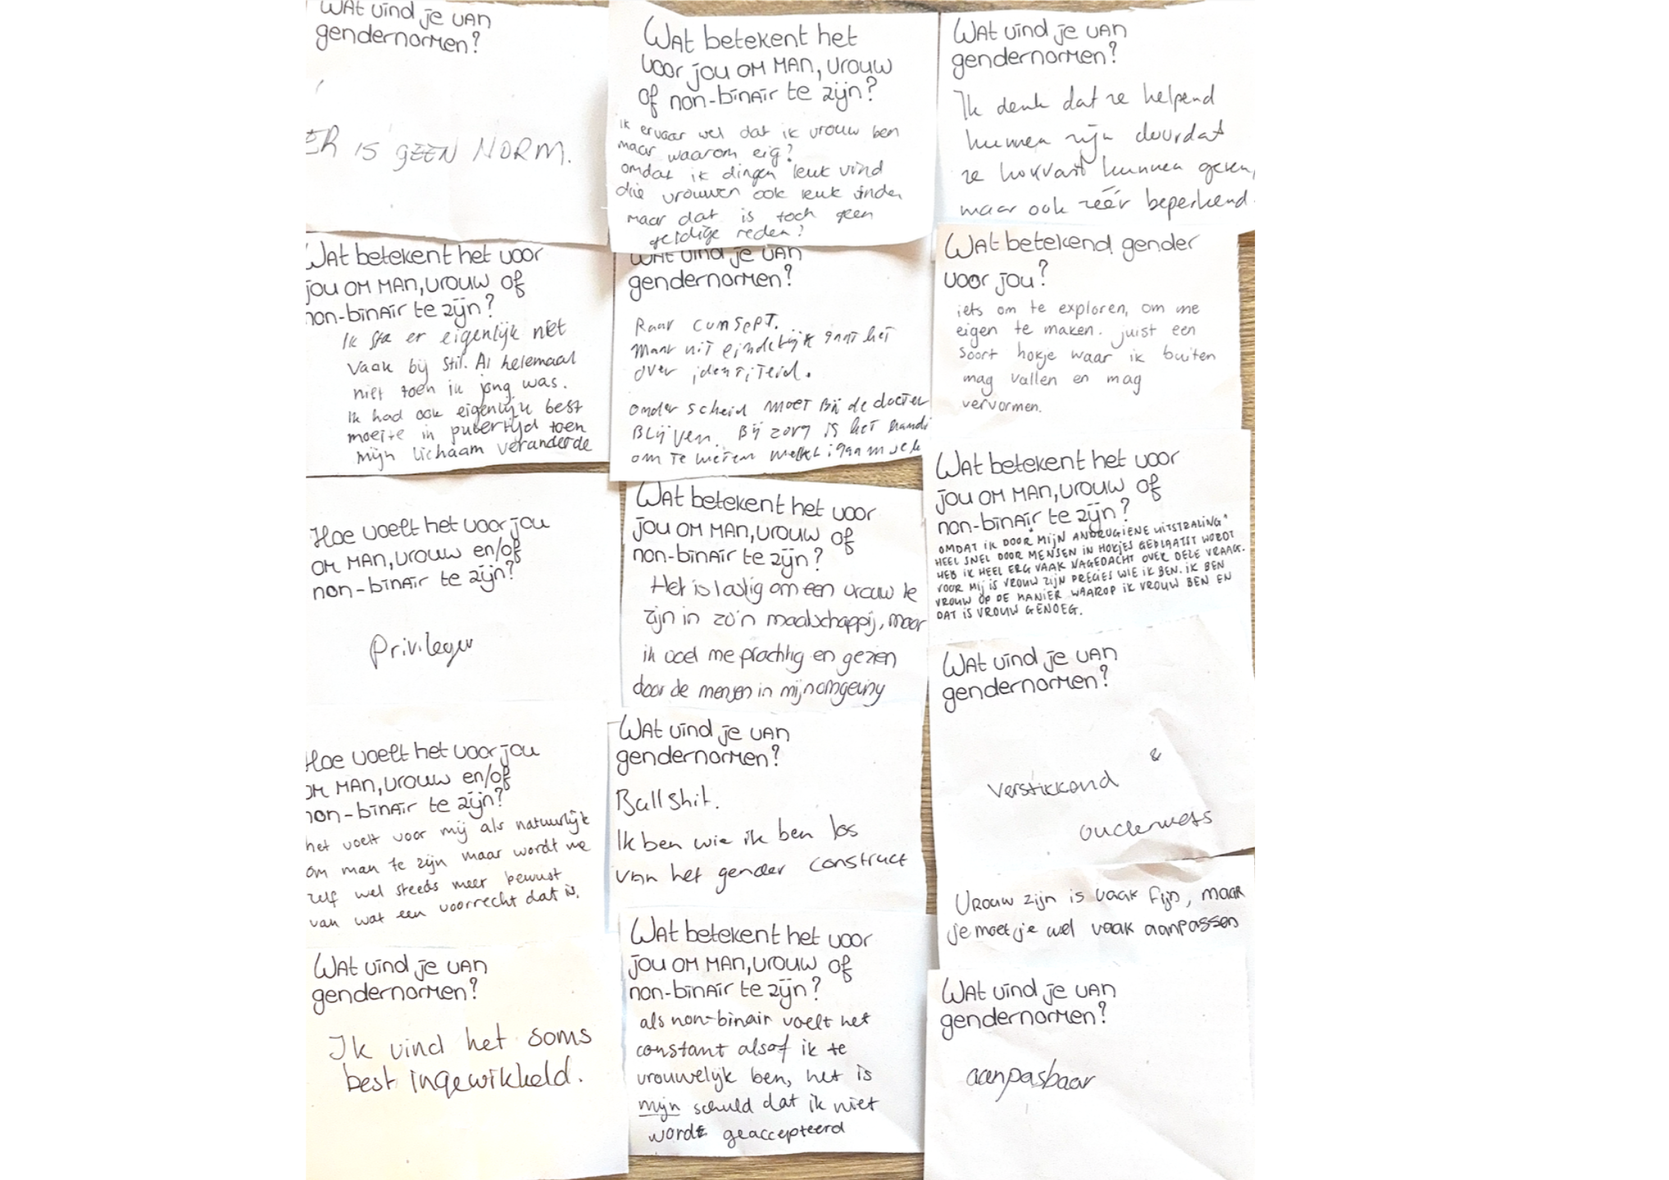 Wat vind je van
gendernormen?
ER IS GEEN NORM.
Wat betekent het voor
jou om man, vrouw of
non-binair te zijn?
Ik sta er eigenlijk niet
vaak bij stil. Al helemaal
niet toen ik jong was.
Ik had ook eigenlijk best
moeite in pubertijd toen
mijn lichaam veranderde
Hoe voelt het voor jou
om man, vrouw en/of
non-binair te zijn?
Privilege
Hoe voelt het voor jou
om man, vrouw en/of
non-binair te zijn?
het voelt voor mij als natuurlijk
om man te zijn maar wordt me
zelf wel steeds meer bewust
van wat een voorrecht dat is.
Wat vind je van
gendernormen?
Ik vind het soms
best ingewikkeld.
Wat betekent het
voor jou om man, vrouw
of non-binair te zijn?
ik ervaar wel dat ik vrouw ben
maar waarom eig?
omdat ik dingen leuk vind
die vrouwen ook leuk vinden
maar dat is toch geen
geldige reden?
Wat vind je van
gendernormen?
Raar consept.
Maar uit eindelijk gaat het
over identiteid.
onder scheid moet bij de docter
Blijven. Bij zorg is het handi
om te weten welk
Wat betekent het voor
jou om man, vrouw of
non-binair te zijn?
Het is lastig om een vrouw te
zijn in zo'n maatschappij, maar
ik voel me prachtig en gezien
door de mensen in mijn omgeving
Wat vind je van
gendernormen?
Bullshit.
Ik ben wie ik ben los
van het gender construct
Wat betekent het voor
jou om man, vrouw of
non-binair te zijn?
als non-binair voelt het
constant alsof ik te
vrouwelijk ben, het is
mijn schuld dat ik niet
wordt geaccepteerd
Wat vind je van
gendernormen?
Ik denk dat ze helpend
kunnen zijn doordat
ze houvast kunnen geven,
maar ook zéér beperkend.
Wat betekend gender
voor jou?
iets om te exploren, om me
eigen te maken. juist een
soort hokje waar ik buiten
mag vallen en mag
vervormen.
Wat betekent het voor
jou om man, vrouw of
non-binair te zijn?
OMDAT IK DOOR MIJN "ANDROGIENE UITSTRALING"
HEEL SNEL DOOR MENSEN IN HOKJES GEPLAATST WORDT
HEB IK HEEL ERG VAAK NAGEDACHT OVER DEZE VRAAG.
VOOR MIJ IS VROUW ZIJN PRECIES WIE IK BEN. IK BEN
VROUW OP DE MANIER WAAROP IK VROUW BEN EN
DAT IS VROUW GENOEG.
Wat vind je van
gendernormen?
&
verstikkend
ouderwets
Vrouw zijn is vaak fijn, maar
je moet je wel vaak aanpassen
Wat vind je van
gendernormen?
aanpasbaar